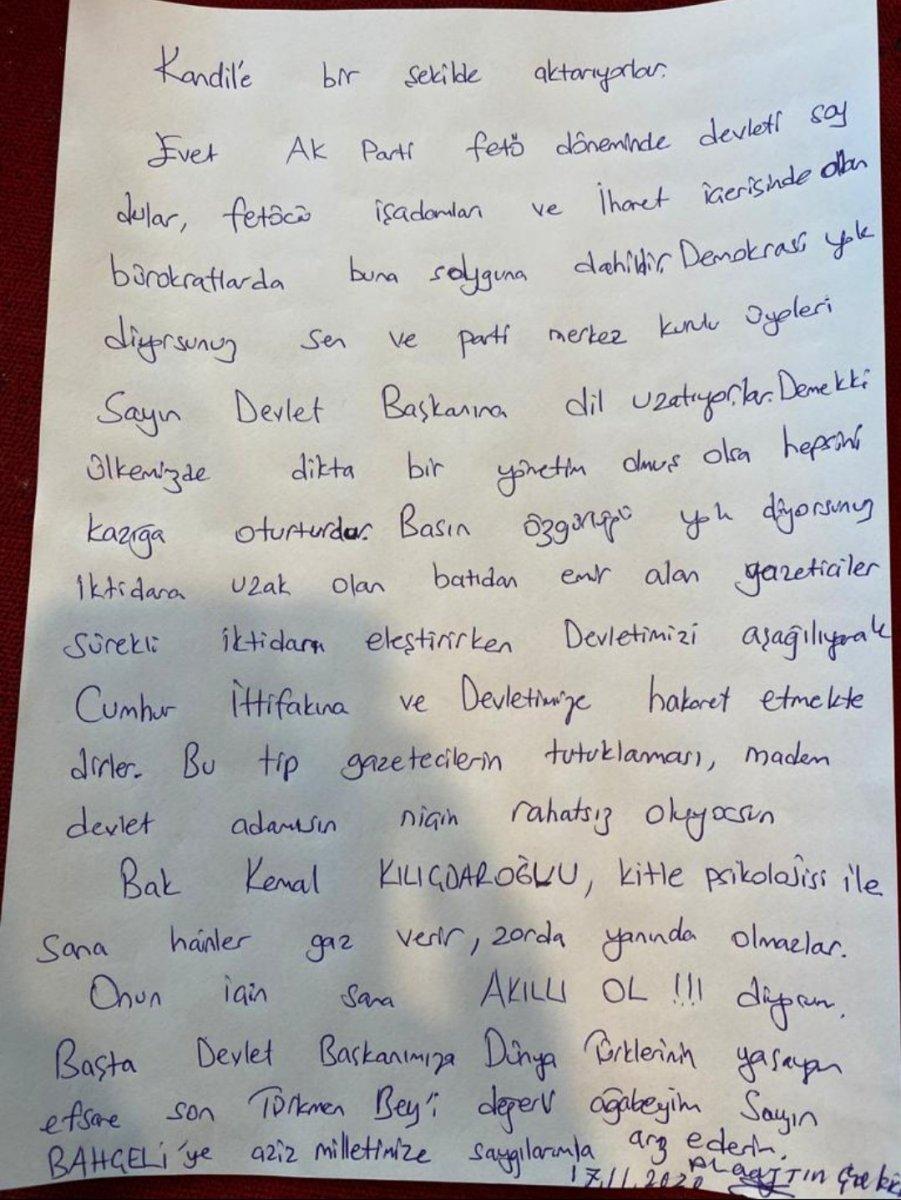 Kandil'e bir şekilde aktarıyorlar.
Evet AK Parti fetö döneminde devleti soy
dular, fetöcü işadamları ve İhanet içerisinde olan
bürokratlarda buna soyguna dahildir. Demokrasi yok
diyorsunuz sen ve parti merkez kurulu üyeleri
Sayın Devlet Başkanına dil uzatıyorlar. Demekki
ülkemizde dikta bir yönetim olmuş olsa hepsini
kazığa oturturdu. Basın özgürlüğü yok diyorsunuz
iktidara uzak olan batıdan emir alan gazeticiler
sürekli iktidarı eleştirirken Devletimizi aşağılıyarak
Cumhur İttifakına ve Devletimize hakaret etmekte
dirler. Bu tip gazetecilerin tutuklanması, madem
devlet adamısın niçin rahatsız oluyorsun
Bak Kemal KILIÇDAROĞLU, kitle psikolojisi ile
sana hainler gaz verir, zorda yanında olmazlar.
Onun için sana AKILLI OL !!! diyorum.
Başta Devlet Başkanımıza Dünya Türklerinin yaşayan
efsane son Türkmen Bey'i değerli ağabeyim Sayın
BAHÇELİ'ye aziz milletimize saygılarımla arz ederim.
17.11.2020